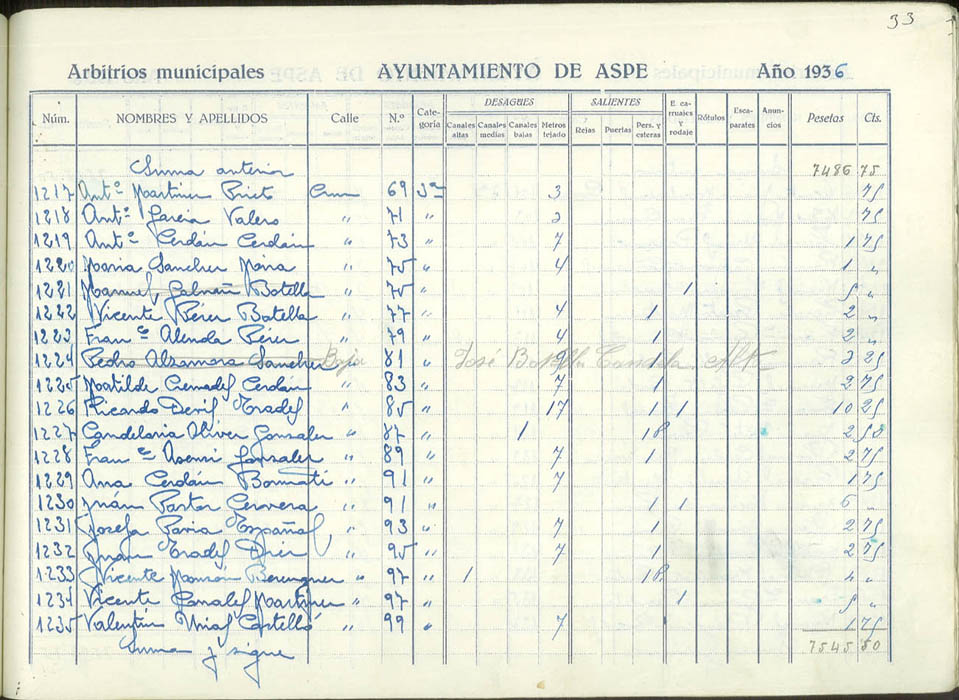 33
Arbitrios municipales AYUNTAMIENTO DE ASPE Año 1936
Núm. NOMBRES Y APELLIDOS Calle N.º Cate- goría DESAGÜES Canales altas Canales medias Canales bajas Metros tejado SALIENTES Rejas Puertas Pers. y esteras E. ca- rruajes y rodaje Rótulos Esca- parates Anun- cios Pesetas Cts.
Suma anterior 7486 75
1217 Antº Martinez 69 3ª 3 75
1218 Antº Garcia Valero " 71 " 3 75
1219 Antº Cerdán Cerdán " 73 " 7 1 75
1220 Maria Sanchez Mira " 75 " 4 1 "
1221 Manuel Botella " 75 " 1 5 "
1222 Vicente Pérez Botella " 77 " 4 1 2 "
1223 Franco Alenda Pérez " 79 " 4 1 2 "
1224 Pedro Alzamora Sanchez Baja " 81 " José Botella Candela Alta 1 2 25
1225 Matilde Cremades Cerdán " 83 " 7 1 2 75
1226 Ricardo Pradel " 85 " 17 1 1 10 25
1227 Candelaria Oliver Gonzalez " 87 " 1 1 P. 2 50
1228 Franco Asensi Gonzalez " 89 " 7 1 2 75
1229 Ana Cerdán Bonmatí " 91 " 7 1 75
1230 Juán Pastor Cervera " 91 " 1 1 6 "
1231 Josefa Pavia Español " 93 " 7 1 2 75
1232 Juan Pradel " 95 " 7 1 2 75
1233 Vicente Berenguer " 97 " 1 1 P. 4 "
1234 Vicente Canales Martinez " 97 " 1 5 "
1235 Valentin Castelló " 99 " 7 1 75
Suma y sigue 7545 50